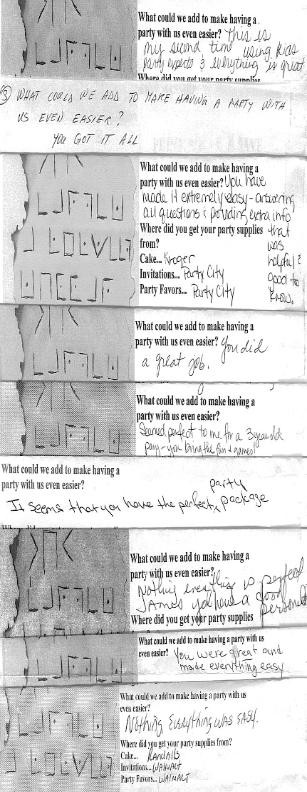 What could we add to make having a
party with us even easier? This is
my second time using Kids
Party experts & everything is great
Where did you get your party supplies
③ WHAT COULD WE ADD TO MAKE HAVING A PARTY WITH
US EVEN EASIER?
YOU GOT IT ALL
What could we add to make having a
party with us even easier? You have
made it extremely easy - answering
all questions & providing extra info
Where did you get your party supplies that
from? was
Cake... Kroger helpful &
Invitations... Party City good to
Party Favors... Party City know.
What could we add to make having a
party with us even easier? You did
a great job.
What could we add to make having a
party with us even easier?
Seemed perfect to me for a 3 year old
party - you bring the fun & games!
What could we add to make having a
party with us even easier?
It seems that you have the perfect party package
What could we add to make having a
party with us even easier?
Nothing everything is perfect
James you have a good personality
Where did you get your party supplies
What could we add to make having a party with us
even easier? You were great and
made everything easy
What could we add to make having a party with us
even easier?
Nothing. Everything was easy.
Where did you get your party supplies from?
Cake... RANDALLS
Invitations... WALMART
Party Favors... WALMART